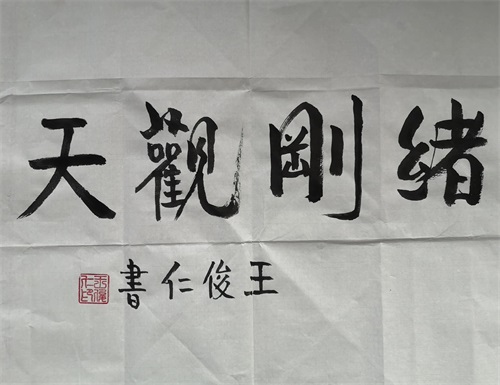 緒剛觀天
王俊仁書